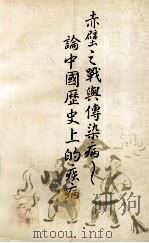 赤壁之戰與傳染病
論中國歷史上的疾病